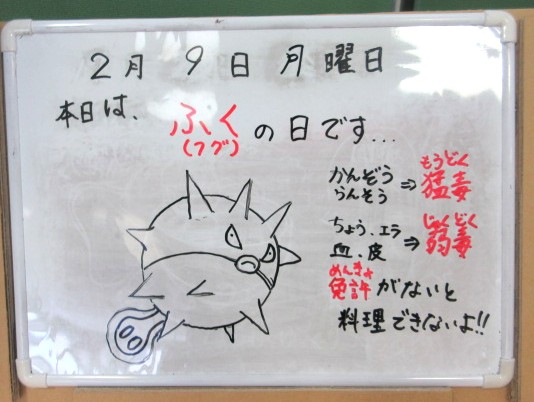 2月 9日 月曜日
本日は、ふくの日です…
(フグ)
もうどく
かんぞう らんそう ⇒ 猛毒
じゃくどく
ちょう、エラ 血、皮 ⇒ 弱毒
めんきょ
免許がないと
料理できないよ!!